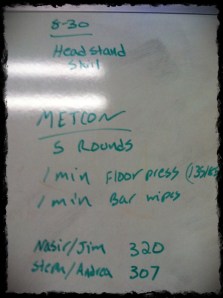 8-30
Headstand
Skil
METCON
5 Rounds
1 min Floor press (135/
1 min Bar wipes
Nasir/Jim 320
Steph/Andrea 307